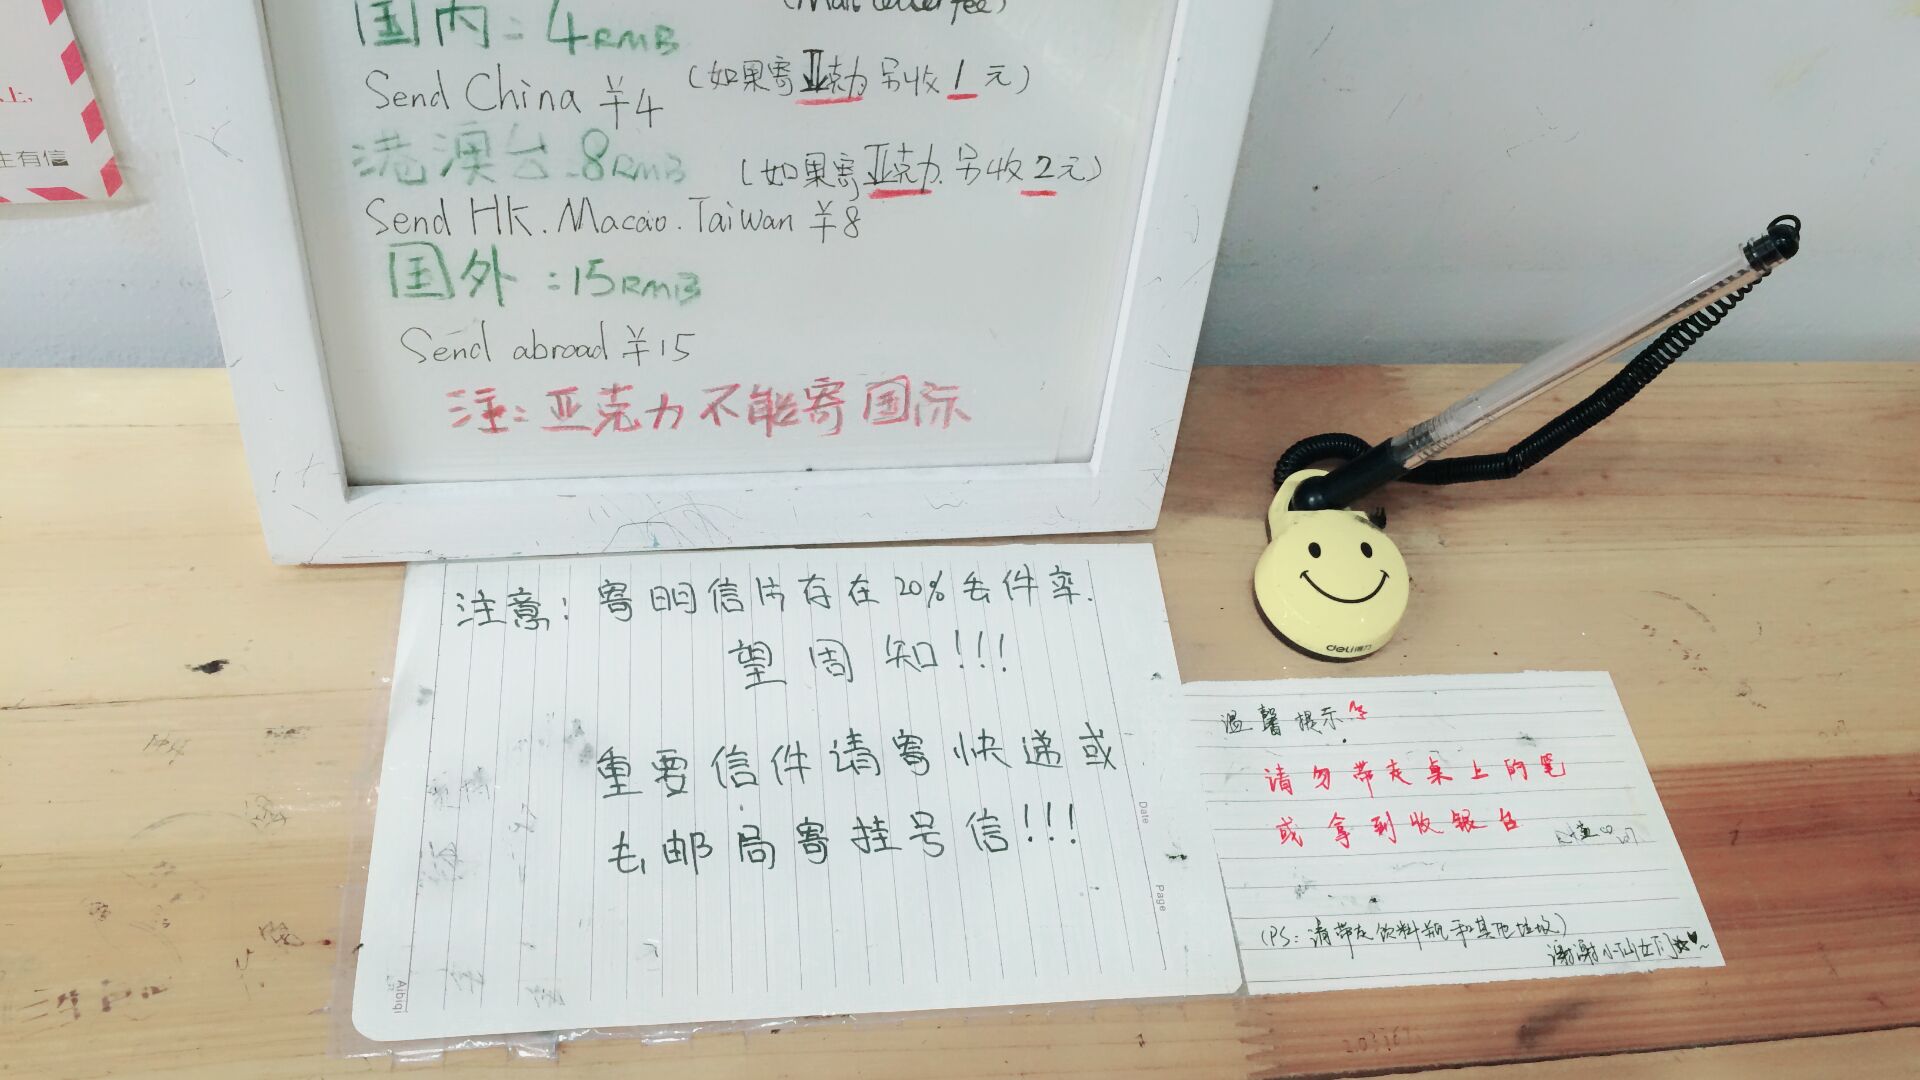 (Mail letter fee)
国内:4RMB
Send China ¥4
(如果寄亚克力另收1元)
港澳台:8RMB
(如果寄亚克力.另收2元)
Send HK.Macao.Taiwan ¥8
国外:15RMB
Send abroad ¥15
注:亚克力不能寄国际
上,
生有信
注意:寄明信片存在20%丢件率.
望周知!!!
重要信件请寄快递或
去邮局寄挂号信!!!
Date
Page
Aibiqi
deli得力
温馨提示
请勿带走桌上的笔
或拿到收银台
(PS:请带走饮料瓶和其他垃圾)
谢谢小仙女们